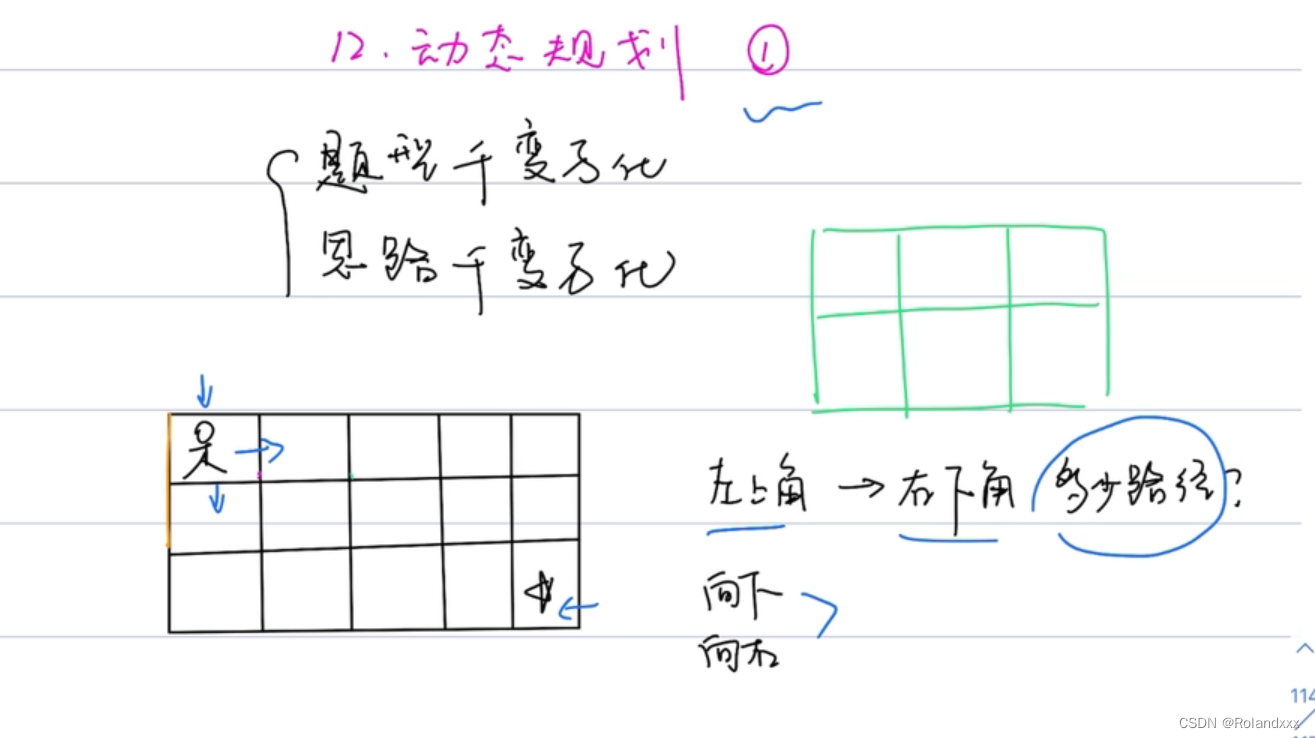 12. 动态规划 ①
题型千变万化
思路千变万化
左上角 → 右下角 多少路径?
向下
向右
114
CSDN @Rolandxxx